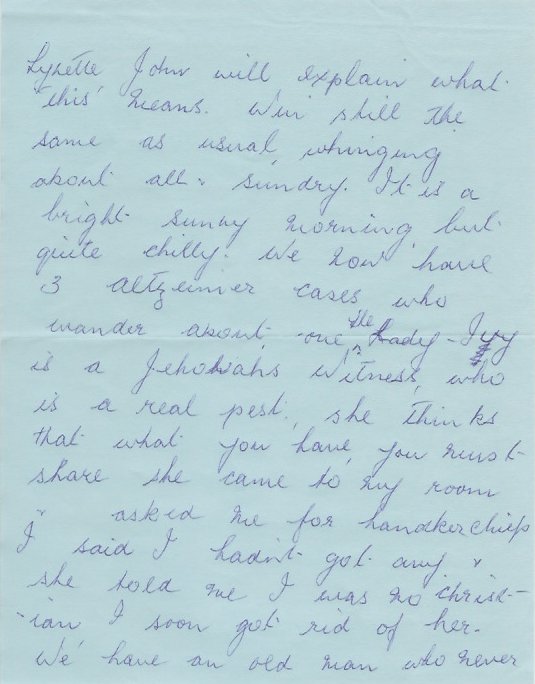 Lynette John will explain what
'this' means. Win still the
same as usual, whinging
about all & sundry. It is a
bright sunny morning but
quite chilly. We now have
3 altzeimer cases who
wander about, one the Lady - Ivy
is a Jehovahs Witness, who
is a real pest, she thinks
that what you have, you must
share she came to my room
& asked me for handkerchiefs
I said I hadn't got any &
she told me I was no christ-
-ian I soon got rid of her.
We have an old man who never